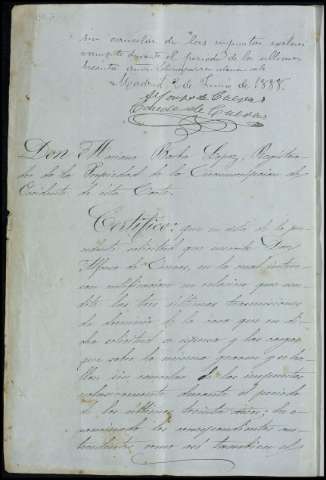 sin cancelar de los impuestos exclusi
vamente durante el periodo de los ultimos
treinta años
Madrid 2 de Junio de 1888.
Alfonso de Cuevas
Don Mariano Lopez, Registra
dor de la Propiedad de la Circunscripcion de
Occidente de esta Corte.
Certifico: que en vista de la pre
sente solicitud que suscribe Don
Alfonso de Cuevas, en la cual interesa
una certificacion en relacion que acre
dite las tres últimas transmisiones
de dominio de la casa que en di
cha solicitud se expresa y las cargas
que sobre la misma pesan y se ha
llan sin cancelar de las impuestas
exclusivamente durante el periodo
de los últimos treinta años; he e
xaminado los correspondientes an
tecedentes, como asi tambien el